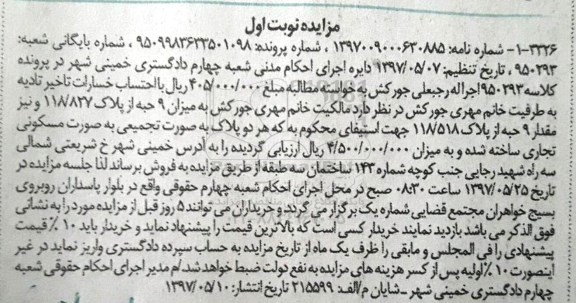 مزایده نوبت اول
۳۳۲۶-۱- شماره نامه: ۱۳۹۷۰۰۹۰۰۰۶۳۰۸۸۵ ، شماره پرونده: ۹۵۰۹۹۸۳۶۳۳۵۰۱۰۹۸ ، شماره بایگانی شعبه:
۹۵۰۲۹۳ ، تاریخ تنظیم: ۱۳۹۷/۰۵/۰۷ دایره اجرای احکام مدنی شعبه چهارم دادگستری خمینی شهر در پرونده
کلاسه ۹۵۰۲۹۳ اجرا له رجبعلی جورکش به خواسته مطالبه مبلغ ۴۰۵/۰۰۰/۰۰۰ ریال با احتساب خسارات تاخیر تادیه
به طرفیت خانم مهری جورکش در نظر دارد مالکیت خانم مهری جورکش به میزان ۹ حبه از پلاک ۱۱۸/۸۲۷ و نیز
مقدار ۹ حبه از پلاک ۱۱۸/۵۱۸ جهت استیفای محکوم به که هر دو پلاک به صورت تجمیعی به صورت مسکونی
تجاری ساخته شده و به میزان ۴/۵۰۰/۰۰۰/۰۰۰ ریال ارزیابی گردیده را به آدرس خمینی شهر خ شریعتی شمالی
سه راه شهید رجایی جنب کوچه شماره ۱۴۳ ساختمان سه طبقه از طریق مزایده به فروش برساند لذا جلسه مزایده در
تاریخ ۱۳۹۷/۰۵/۲۵ ساعت ۰۸:۳۰ صبح در محل اجرای احکام شعبه چهارم حقوقی واقع در بلوار پاسداران روبروی
بسیج خواهران مجتمع قضایی شماره یک برگزار می گردد و خریداران می توانند ۵ روز قبل از مزایده مورد را به نشانی
فوق الذکر می باشد بازدید نمایند خریدار کسی است که بالاترین قیمت را پیشنهاد نماید و خریدار باید ۱۰ % قیمت
پیشنهادی را فی المجلس و مابقی را ظرف یک ماه از تاریخ مزایده به حساب سپرده دادگستری واریز نماید در غیر
اینصورت ۱۰ % اولیه پس از کسر هزینه های مزایده به نفع دولت ضبط خواهد شد. /م مدیر اجرای احکام حقوقی شعبه
چهارم دادگستری خمینی شهر - شایان م/الف: ۲۱۵۵۹۹ تاریخ انتشار: ۱۳۹۷/۰۵/۱۰